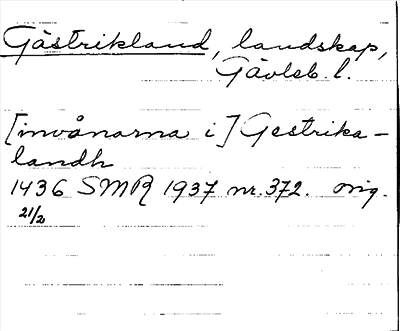 Gästrikland, landskap,
Gävleb. l.
[invånarna i] Gestrika-
landh
1436 SMR 1937 nr. 372. orig.
21/2